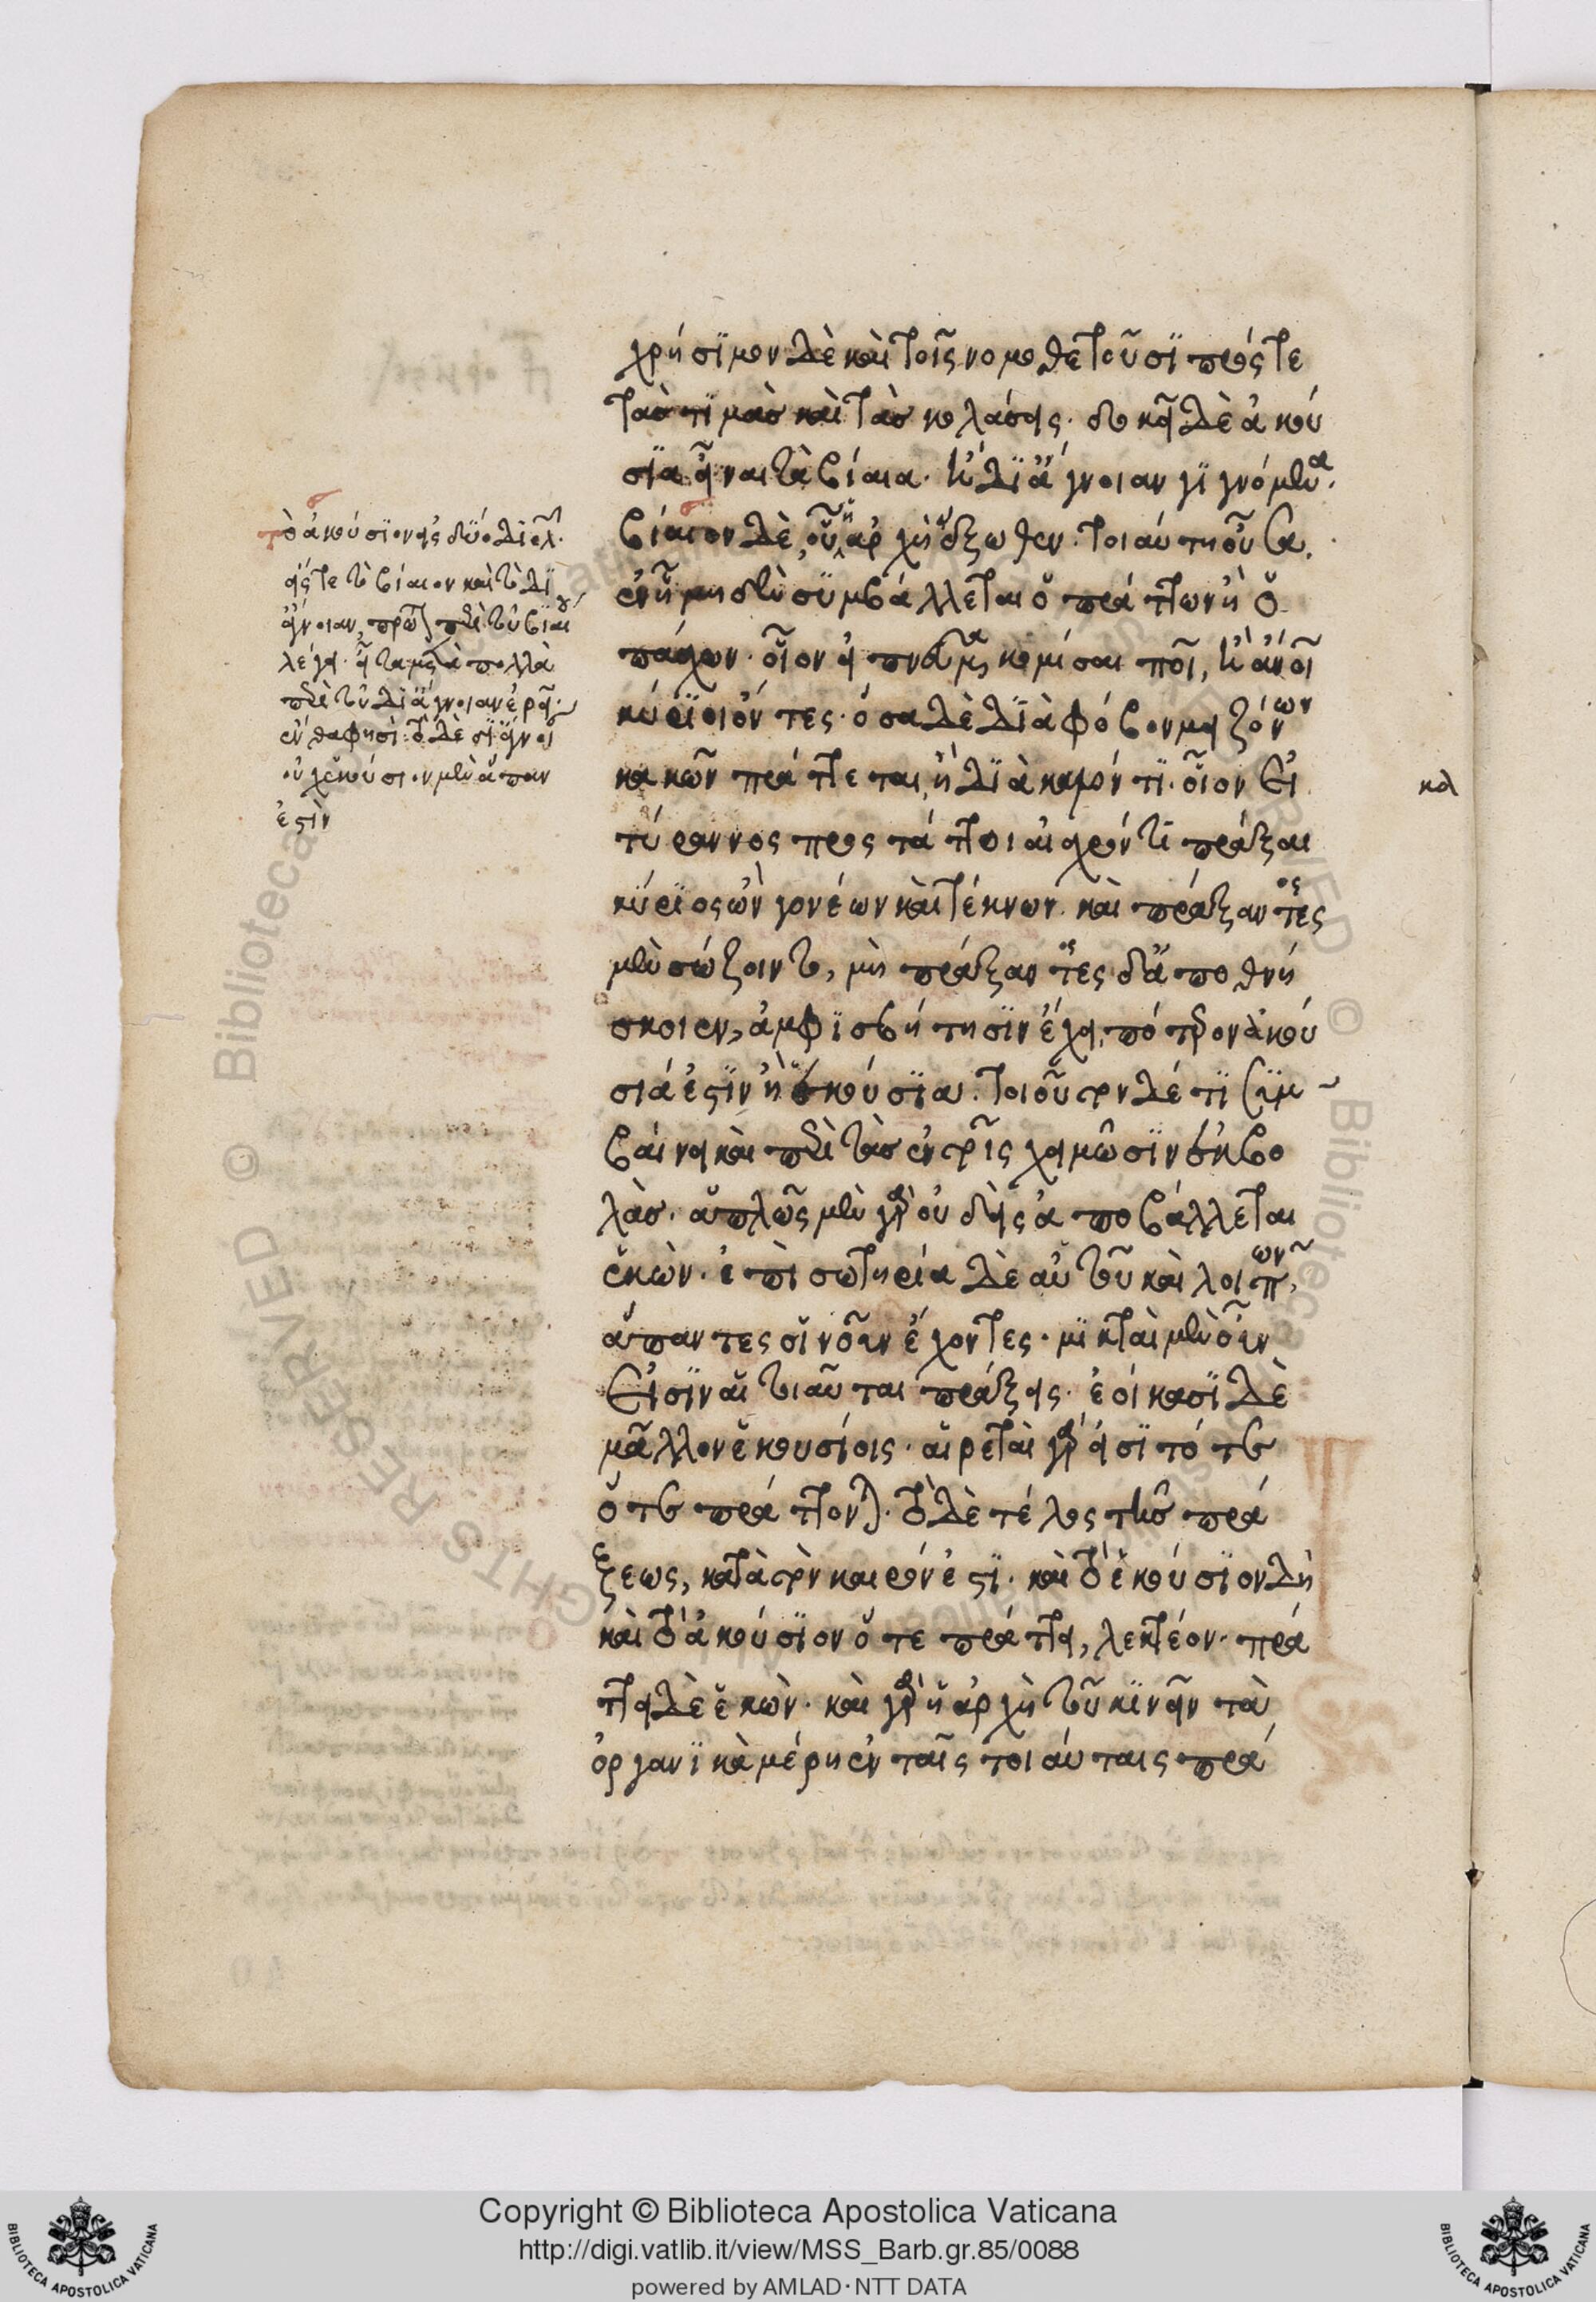 χρήσϊμον δὲ καὶ τοῖς νομοθετοῦσϊ πρός τε
τὰσ τϊμὰσ καὶ τὰσ κολάσεις· δοκεῖ δὲ ἀκού
σϊα εἶναι τὰ βίαια· ἢ δϊ ἄγνοιαν γϊγνόμενα·
βίαιον δὲ, οὗ ἡ ἀρχὴ ἔξωθεν· τοιαύτη οὖσα,
ἐν ᾗ μηδὲν συμβάλλεται ὁ πράττων ἢ ὁ
πάσχων· οἷον εἰ πνεῦμα κομίσαι ποι, ἢ ἄνοι
κύρϊοι ὄντες· ὅσα δὲ δϊὰ φόβον μειζόνων
κακῶν πράττεται, ἢ δϊὰ καλόν τϊ· οἷον εἰ
τύραννος προστάττοι αἰσχρόν τϊ πράξαι
κύρϊος ὢν γονέων καὶ τέκνων· καὶ πράξαντες
μὲν σώζοιντο, μὴ πράξαντες δ' ἀποθνή
σκοιεν, ἀμφϊσβήτησϊν ἔχει, πότερον ἀκού
σιά ἐστϊν ἢ ἑκούσϊα· τοιοῦτον δέ τϊ συμ
βαίνει καὶ περὶ τὰσ ἐν τοῖς χειμῶσϊν ἐκβο
λάσ· ἁπλῶς μὲν γὰρ οὐδεὶς ἀποβάλλεται
ἑκών· ἐπὶ σωτηρία δὲ αὐτοῦ καὶ λοιπῶν,
ἅπαντες οἱ νοῦν ἔχοντες· μϊκταὶ μὲν οὖν
εἰσϊν αἱ τοιαῦται πράξεις· ἐοίκασϊ δὲ
μᾶλλον ἑκουσίοις· αἱρεταὶ γάρ εἰσϊ τότε
ὅτε πράττονται· τὸ δὲ τέλος τῆσ πρά
ξεως, κατὰ τὸν καιρόν ἐστϊ· καὶ τὸ ἑκούσϊον δὴ
καὶ τὸ ἀκούσϊον ὅτε πράττει, λεκτέον· πρά
ττει δὲ ἑκών· καὶ γὰρ ἡ ἀρχὴ τοῦ κϊνεῖν τὰ
ὀργανϊκὰ μέρη ἐν ταῖς τοιαύταις πρά
τὸ ἀκούσϊον εἰς δύο διεῖλ·
εἴς τε τὸ βίαιον καὶ τὸ δϊ
ἄγνοιαν, πρῶτον περὶ τοῦ βιαίου
λέγει· εἶτα μετὰ πολλὰ
περὶ τοῦ δϊ ἄγνοιαν ἐρεῖ·
ἔνθα φησὶ· τὸ δὲ δϊ ἄγνοι
οὐχ ἑκούσιον μὲν ἅπαν
ἐστϊν
καλ
Copyright © Biblioteca Apostolica Vaticana
http://digi.vatlib.it/view/MSS_Barb.gr.85/0088
powered by AMLAD·NTT DATA